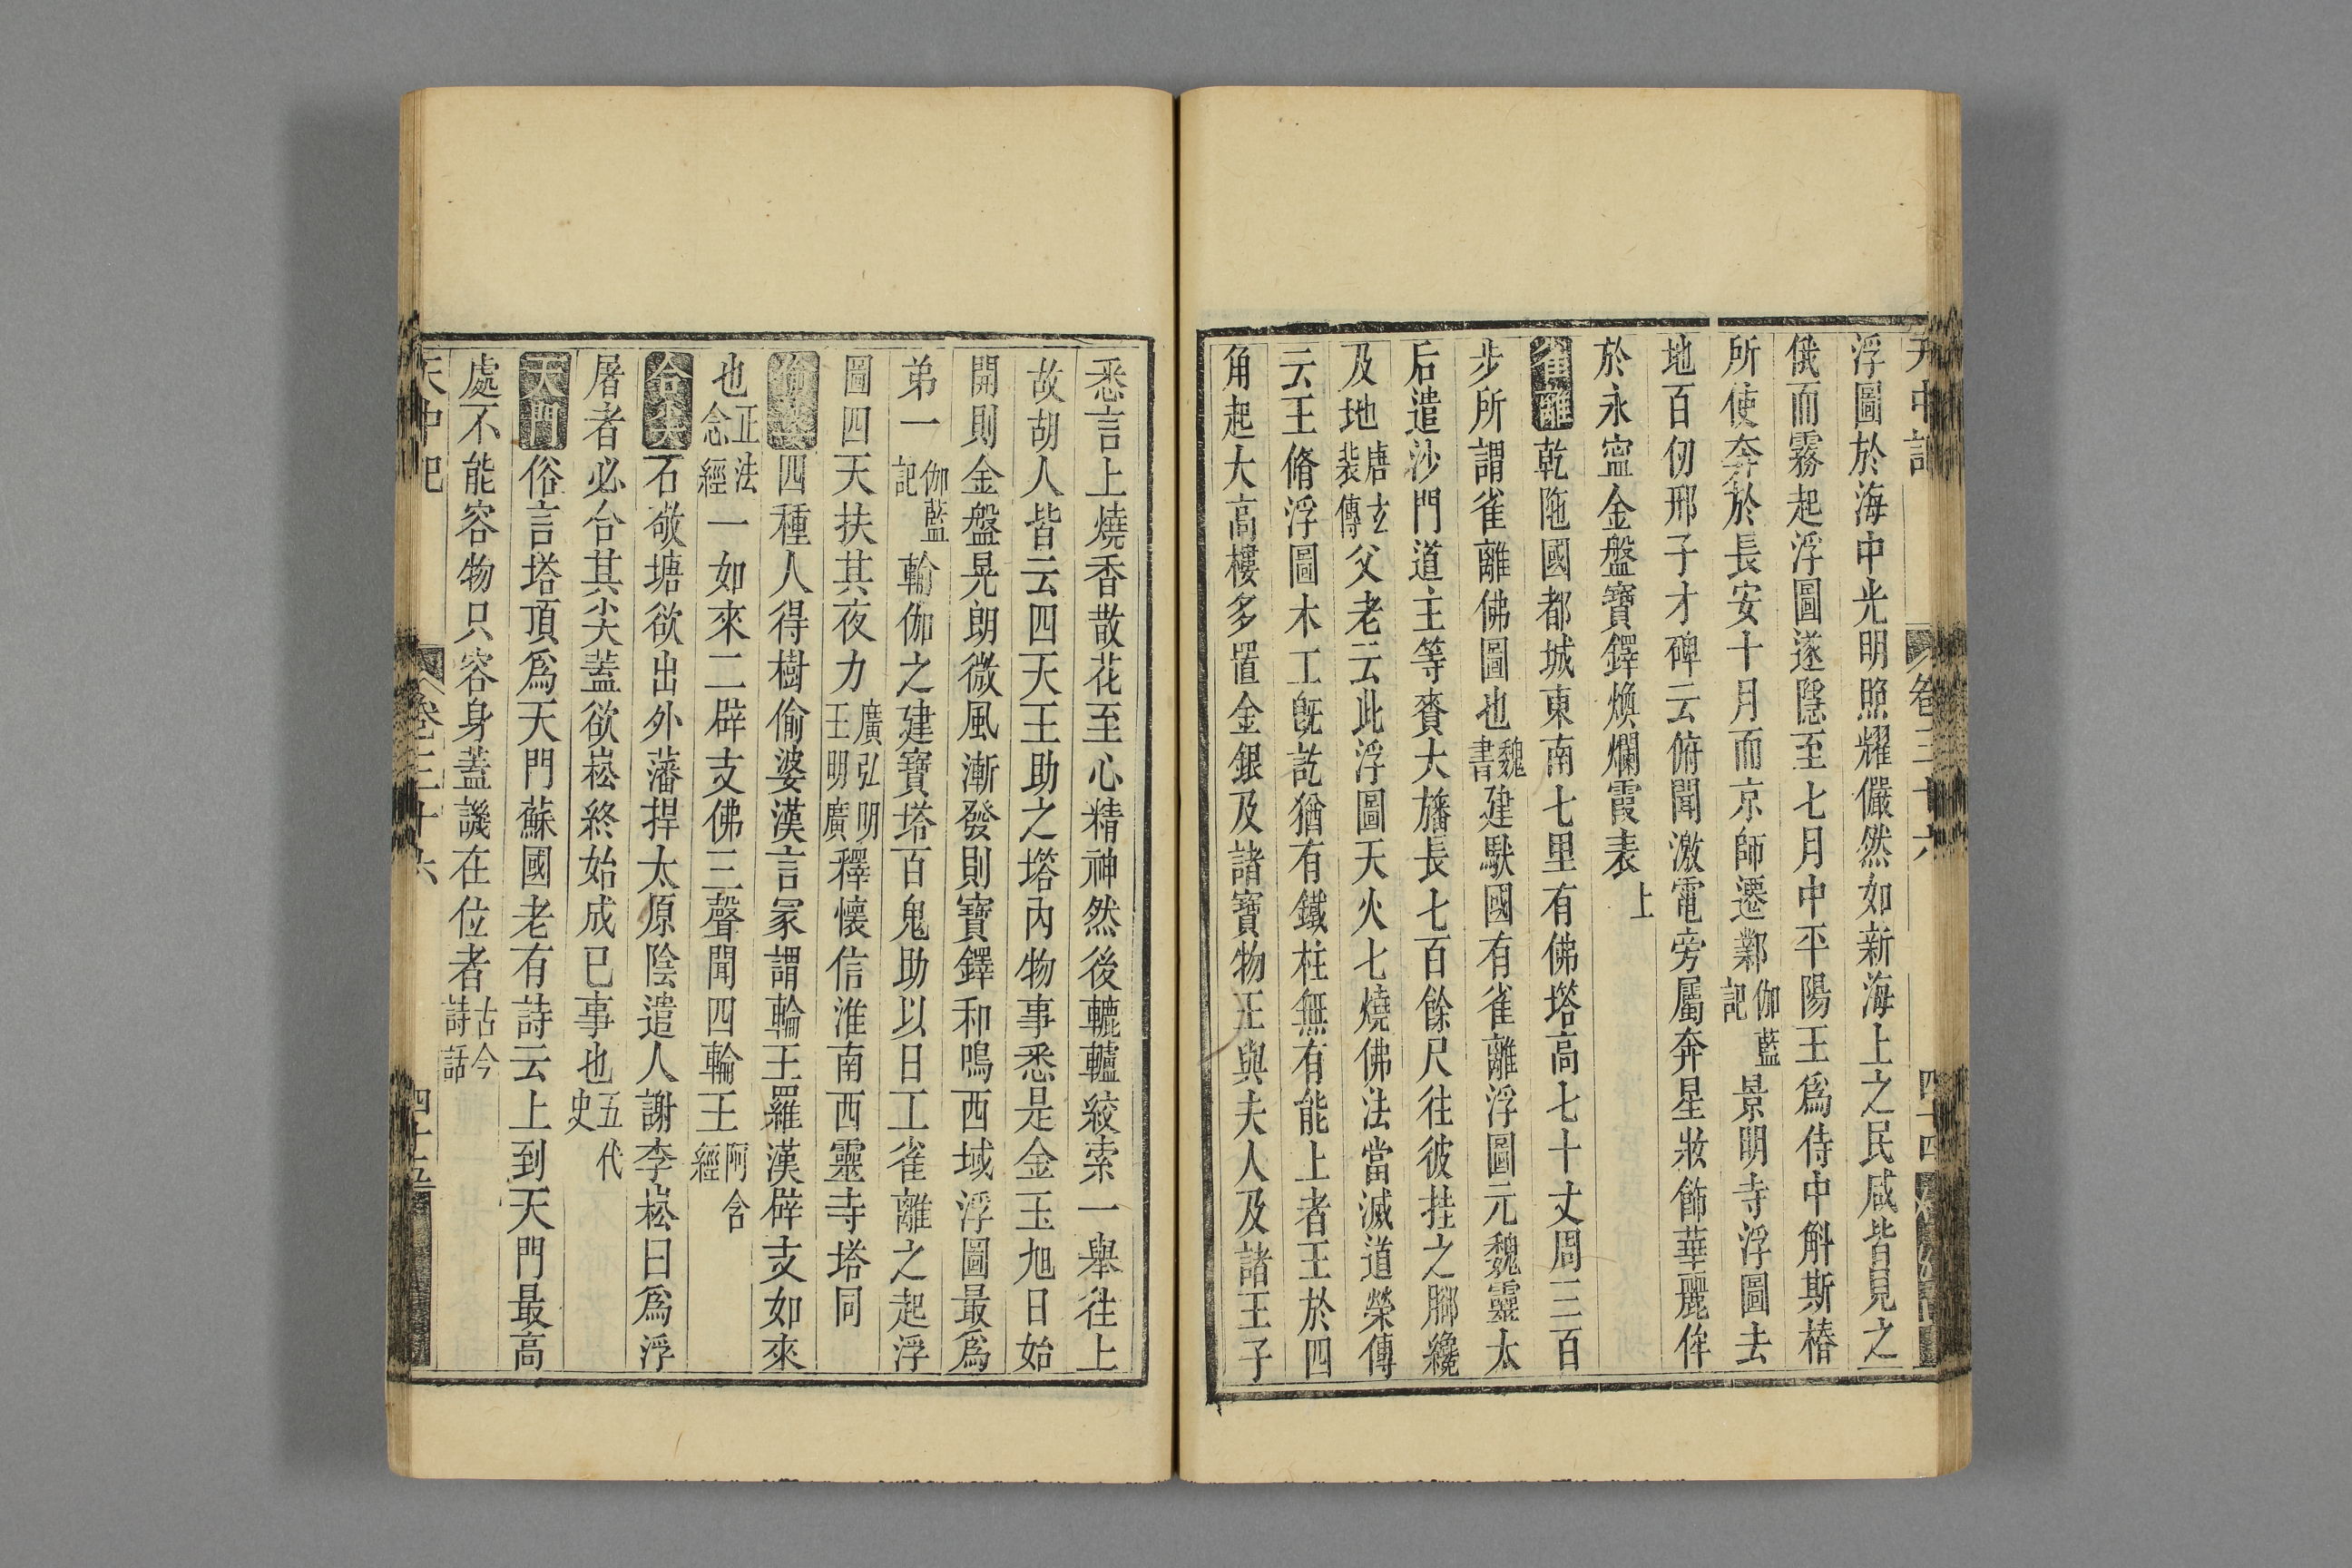 天中記 卷三十六 四十四
浮圖於海中光明照耀儼然如新海上之民咸皆見之
俄而霧起浮圖遂隱至七月中平陽王爲侍中斛斯椿
所使奔於長安十月而京師遷鄴伽藍記景明寺浮圖去
地百仞邢子才碑云俯聞激電旁屬奔星妝飾華麗侔
於永寍金盤寶鐸煥爛霞表上
雀離乾陁國都城東南七里有佛塔高七十丈周三百
步所謂雀離佛圖也魏書建馱國有雀離浮圖元魏靈太
后遣沙門道主等賫大旛長七百餘尺往彼挂之腳纔
及地唐玄裝傳父老云此浮圖天火七燒佛法當滅道榮傳
云王脩浮圖木工旣訖猶有鐵柱無有能上者王於四
角起大高樓多置金銀及諸寶物王與夫人及諸王子
悉言上燒香散花至心精神然後轆轤絞索一舉往上
故胡人皆云四天王助之塔內物事悉是金玉旭日始
開則金盤晃朗微風漸發則寶鐸和鳴西域浮圖最爲
弟一伽藍記輪伽之建寶塔百鬼助以日工雀離之起浮
圖四天扶其夜力廣弘明王明廣釋懷信淮南西靈寺塔同
偷婆四種人得樹偷婆漢言冢謂輪王羅漢辟支如來
也正法念經一如來二辟支佛三聲聞四輪王阿含經
合尖石敬塘欲出外藩捍太原陰遣人謝李崧曰爲浮
屠者必台其尖蓋欲崧終始成已事也五代史
天門俗言塔頂爲天門蘇國老有詩云上到天門最高
處不能容物只容身蓋譏在位者古今詩話
天中記 卷三十六 四十五